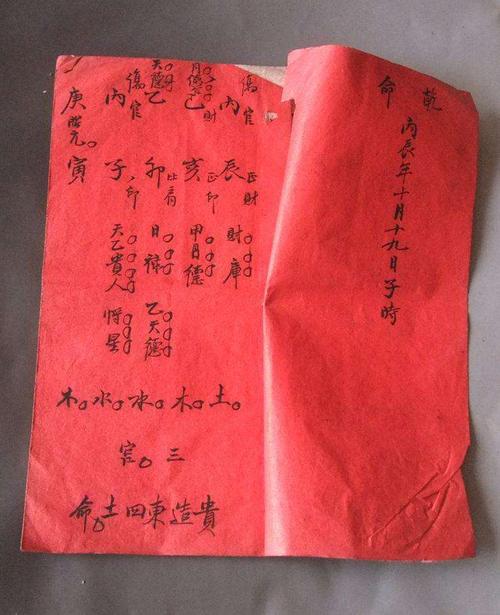 乾命
丙辰年十月十九日子時
傷官
丙辰
正財
財庫
月德
財
己亥
正印
甲月德
天德
乙卯
比肩
日祿
乙天德
傷官
丙子
印
天乙貴人
將星
庚寅
土木水水木
三官
貴造東四土命